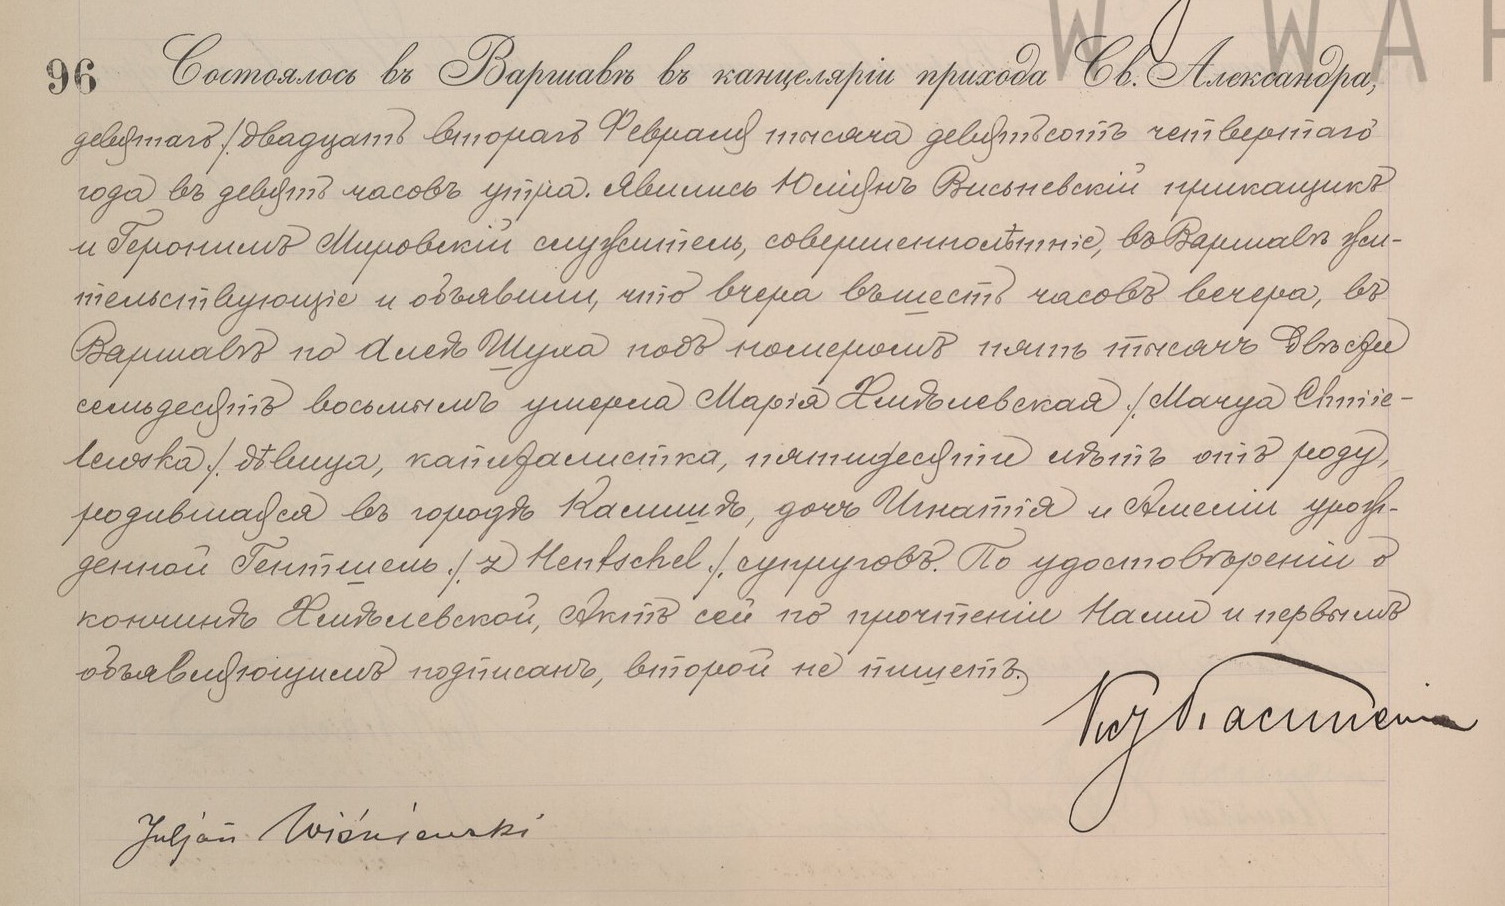 W WAR
96 Состоялось въ Варшавѣ въ канцеляріи прихода Св. Александра,
девятаго /. двадцать втораго Февраля тысяча девятьсотъ четвертаго
года въ девять часовъ утра. Явились Юліянъ Висьневскій прикащикъ
и Геронимъ Мировскій служитель, совершеннолѣтніе, въ Варшавѣ жи-
тельствующіе и объявили, что вчера въ шесть часовъ вечера, въ
Варшавѣ по Аллеѣ Шуха подъ номеромъ пять тысячъ двѣсти
семьдесятъ восьмымъ умерла Марія Хмѣлевская /. Marya Chmie-
lewska /. дѣвица, капиталистка, пятидесяти лѣтъ отъ роду,
родившаяся въ городѣ Калишѣ, дочь Игнатія и Амеліи урож-
денной Гентшель /. z Hentschel /. супруговъ. По удостовѣреніи о
кончинѣ Хмѣлевской, Актъ сей по прочтеніи Нами и первымъ
объявляющимъ подписанъ, второй не пишетъ.
Juljan Wiśniewski